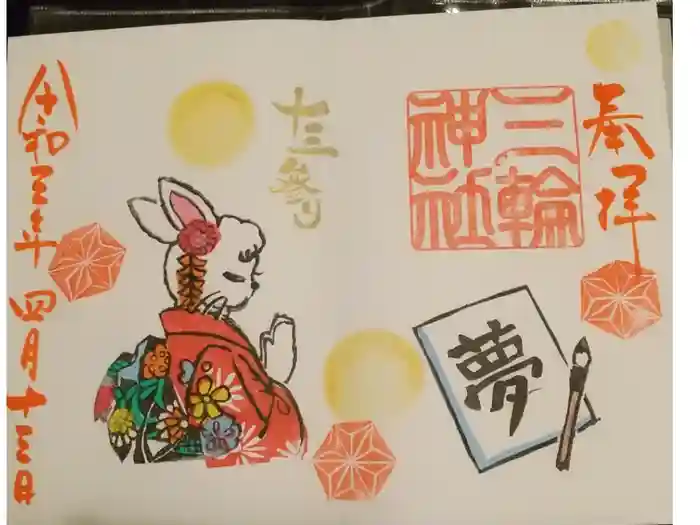 奉拝
三輪
神社
夢
十三参り
令和五年四月十三日